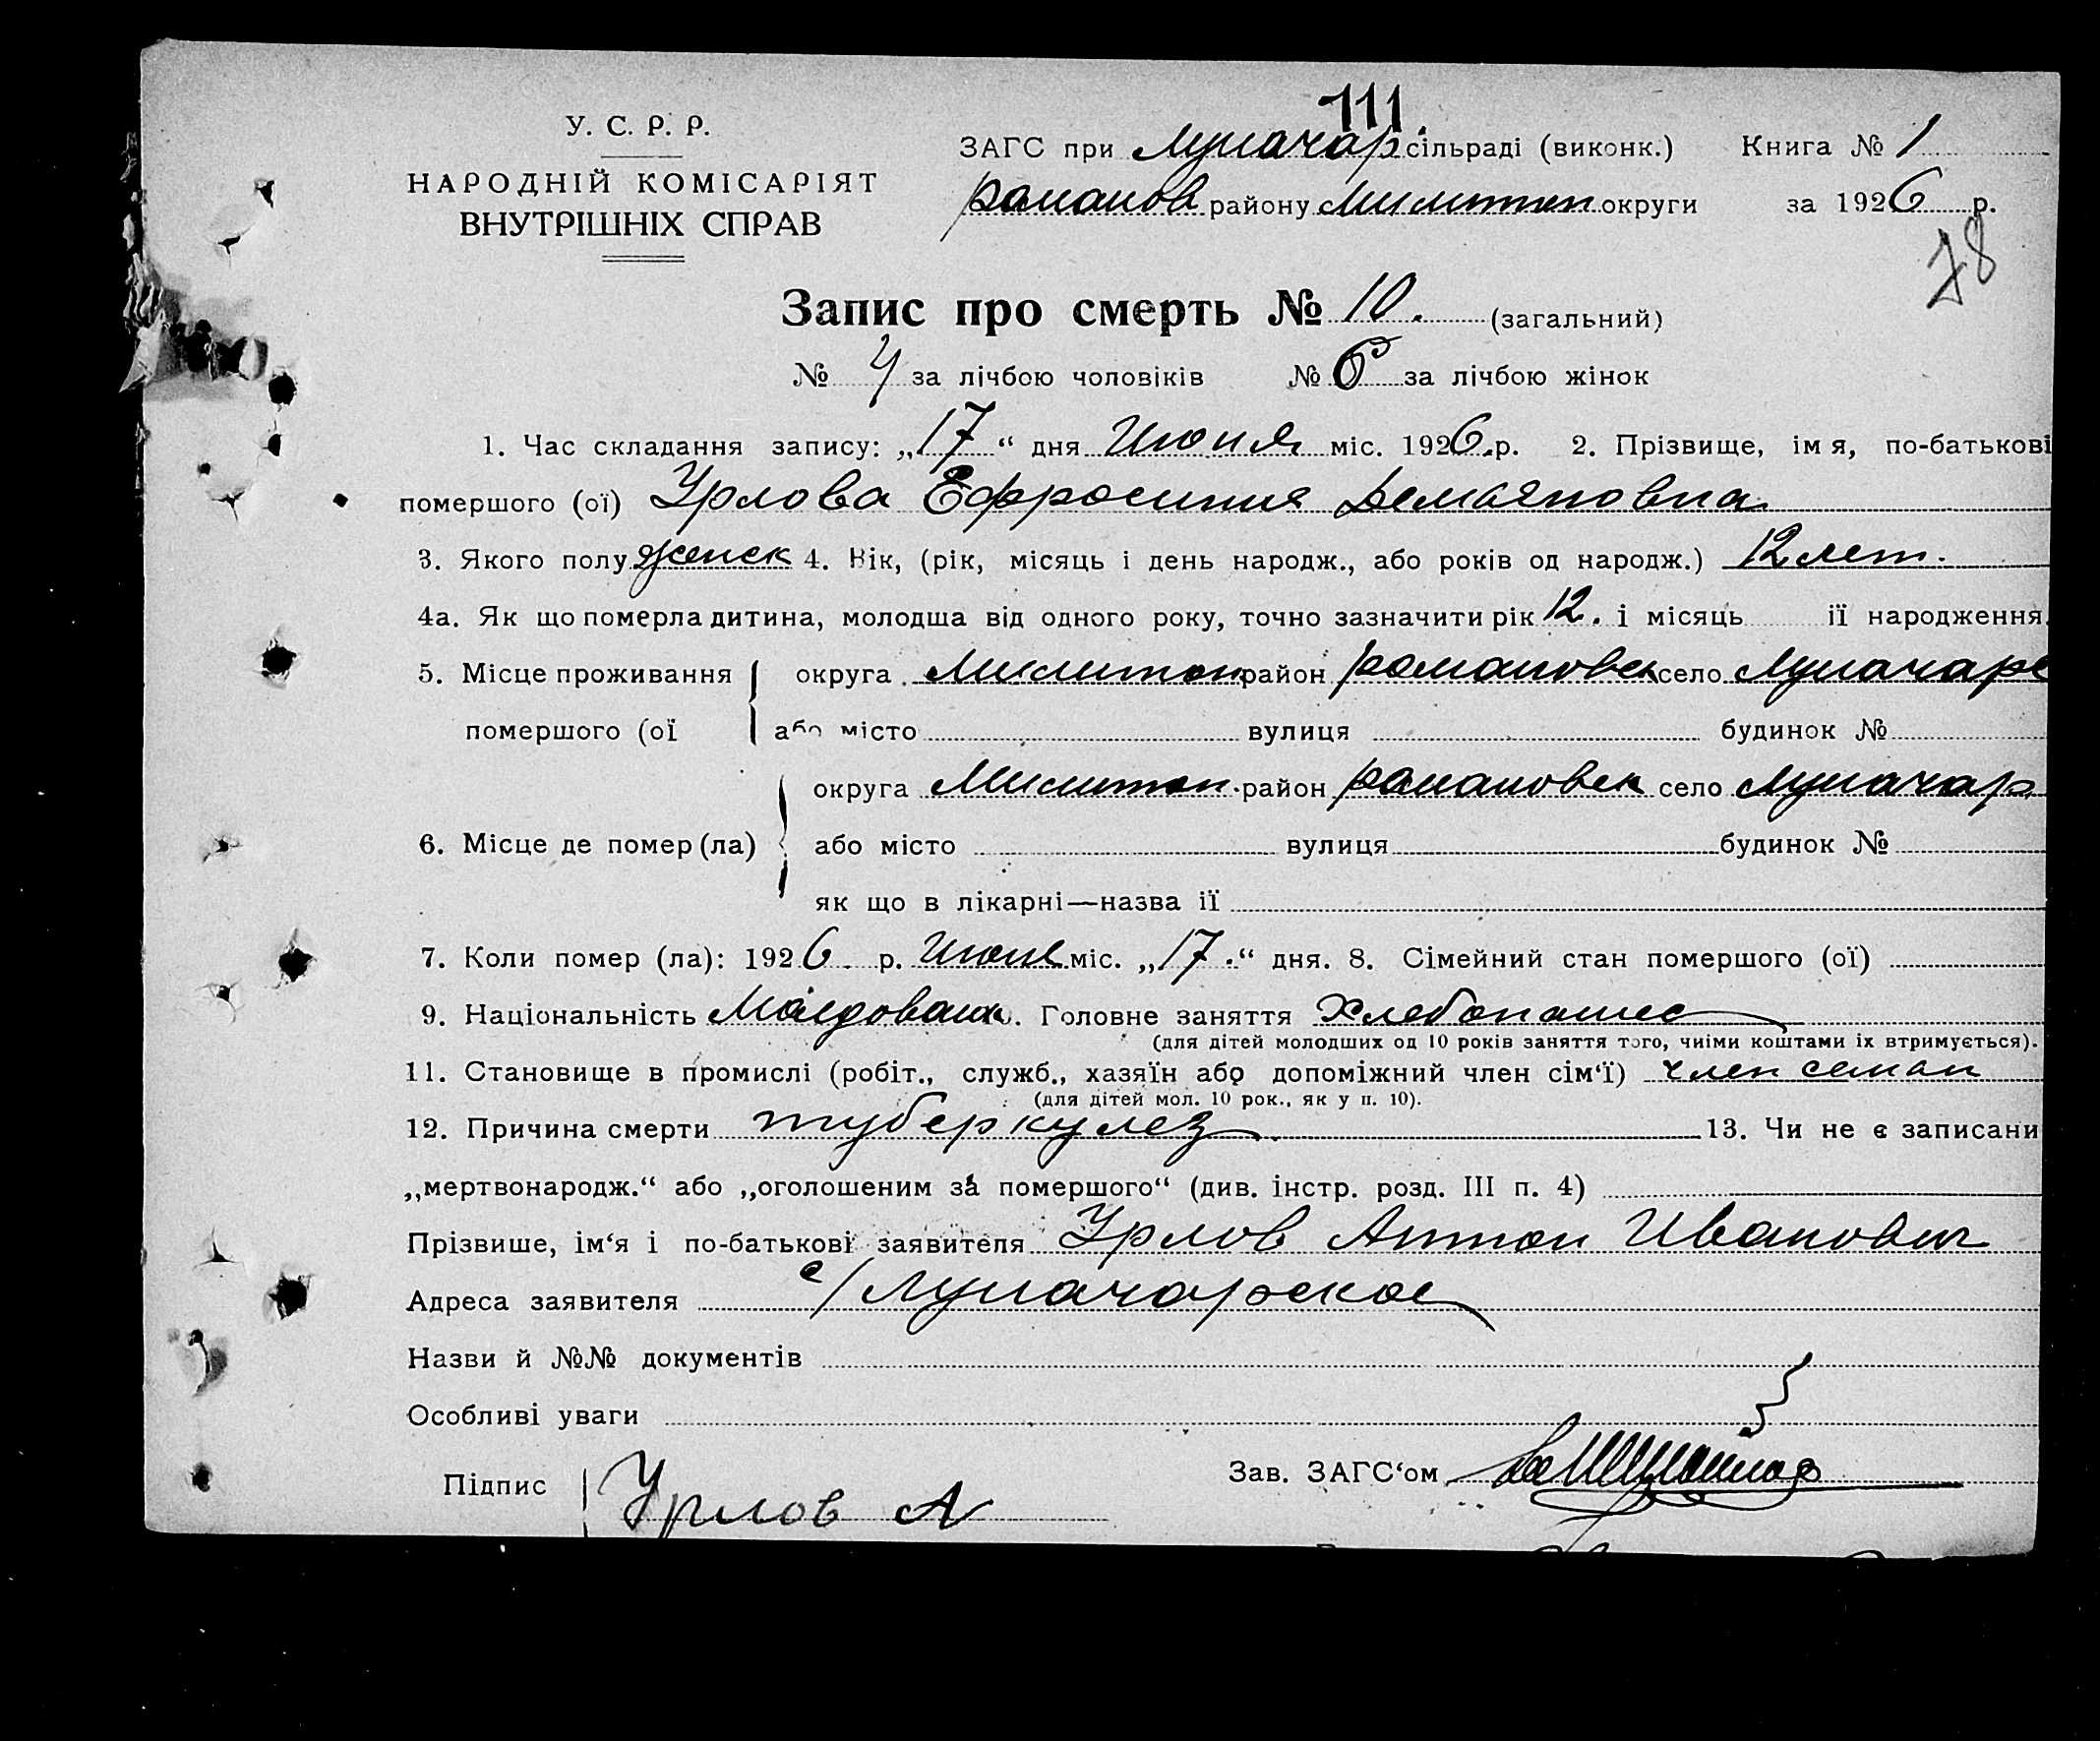 111.
У. С. Р. Р.
ЗАГС при Луначар сільраді (виконк.) Книга № 1
НАРОДНІЙ КОМІСАРІЯТ
Романов району Милитоп округи за 1926 р.
ВНУТРІШНІХ СПРАВ
78
Запис про смерть № 10. (загальний)
№ 4 за лічбою чоловіків № 6 за лічбою жінок
1. Час складання запису: „17“ дня Июня міс. 1926.р. 2. Прізвище, ім я, по-батькові
помершого (ої) Урлова Ефросиния Демьяновна
3. Якого полу женск 4. Вік, (рік, місяць і день народж., або років од народж.) 12 лет.
4а. Як що померла дитина, молодша від одного року, точно зазначити рік 12. і місяць ії народження.
5. Місце проживання округа Милитоп район Романовск село Луначарс
помершого (ої або місто вулиця будинок №
округа Милитоп. район Романовск село Луначар
6. Місце де помер (ла) або місто вулиця будинок №
як що в лікарні—назва ії
7. Коли помер (ла): 1926. р. Июня міс. „17.“ дня. 8. Сімейний стан помершого (ої)
9. Національність Молдован. Головне заняття Хлебопашес
(для дітей молодших од 10 років заняття того, чиіми коштами іх втримується).
11. Становище в промислі (робіт., служб., хазяїн або допоміжний член сім‘ї) член семьи
(для дітей мол. 10 рок., як у п. 10).
12. Причина смерти туберкулез. 13. Чи не є записани
„мертвонародж.“ або „оголошеним за помершого“ (див. інстр. розд. III п. 4)
Прізвише, ім‘я і по-батькові заявителя Урлов Антон Иванович
Адреса заявителя с/Луначарское
Назви й №№ документів
Особливі уваги
Підпис Урлов А
Зав. ЗАГС‘ом